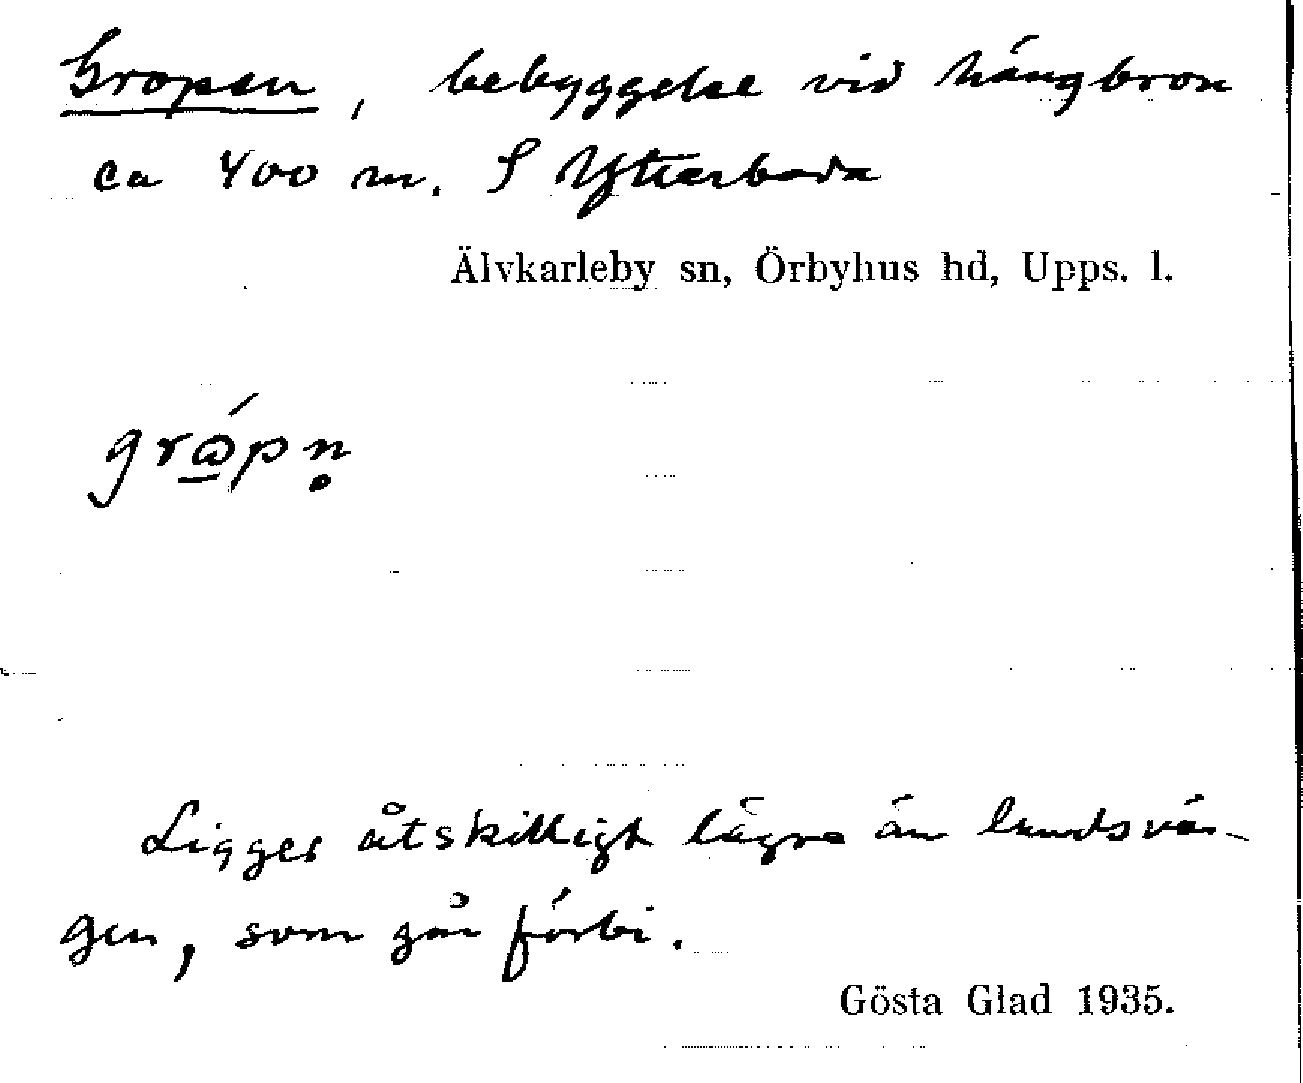 Gropen, bebyggelse vid hängbron
ca 400 m. S Ytterboda
Älvkarleby sn, Örbyhus hd, Upps. l.
Ligger åtskilligt lägre än landsvä-
gen, som går förbi.
Gösta Glad 1935.